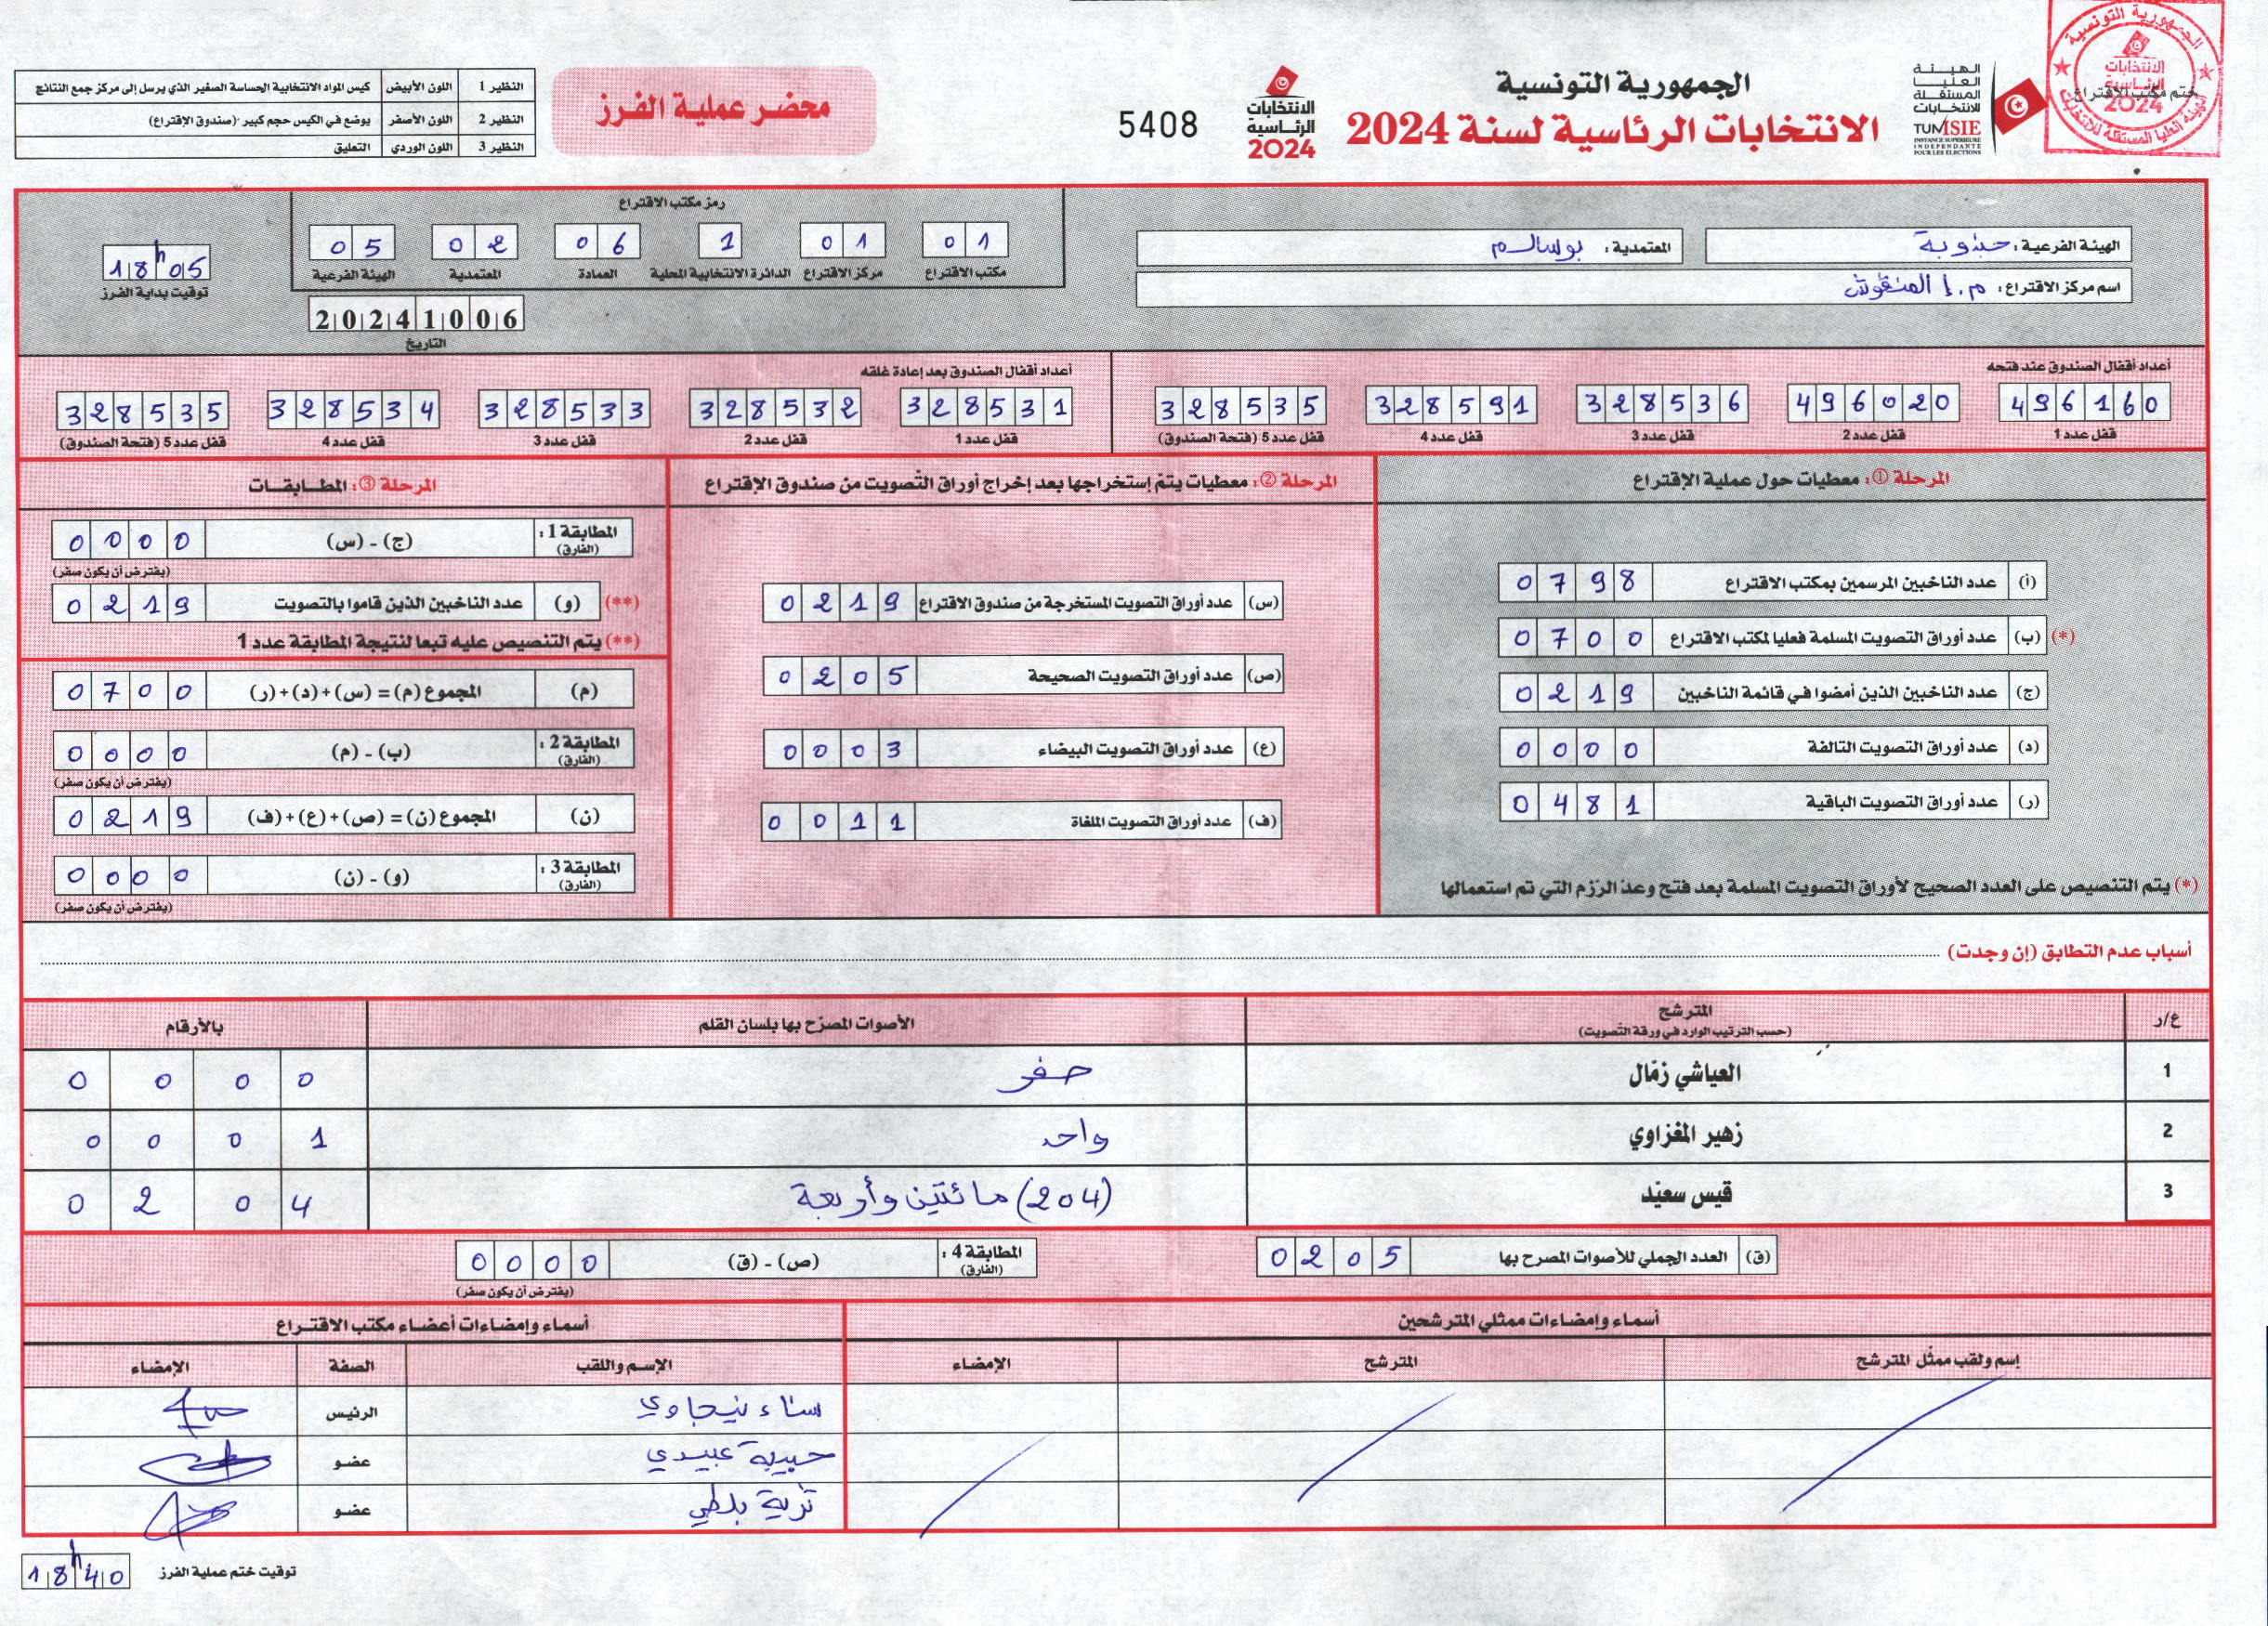 الجمهورية التونسية
الانتخابات الرئاسية لسنة 2024
الهيئة العليا المستقلة للانتخابات
TUNISIE
INSTANCE SUPERIEURE INDEPENDANTE POUR LES ELECTIONS
ختم مكتب الاقتراع
الجمهورية التونسية
الانتخابات الرئاسية 2024
الانتخابات الرئاسية 2024
5408
محضر عملية الفرز
النظير 1 اللون الأبيض كيس المواد الانتخابية الحساسة الصغير الذي يرسل إلى مركز جمع النتائج
النظير 2 اللون الأصفر يوضع في الكيس حجم كبير (صندوق الإقتراع)
النظير 3 اللون الوردي التعليق
الهيئة الفرعية: جندوبة
المعتمدية: بوسالم
اسم مركز الاقتراع: م.إ المنقوش
رمز مكتب الاقتراع
01 مكتب الاقتراع
01 مركز الاقتراع
1 الدائرة الانتخابية المحلية
06 العمادة
02 المعتمدية
05 الهيئة الفرعية
18h05
توقيت بداية الفرز
20241006
التاريخ
أعداد أقفال الصندوق عند فتحه
496160 قفل عدد 1
496020 قفل عدد 2
328536 قفل عدد 3
328591 قفل عدد 4
328535 قفل عدد 5 (فتحة الصندوق)
أعداد أقفال الصندوق بعد إعادة غلقه
328531 قفل عدد 1
328532 قفل عدد 2
328533 قفل عدد 3
328534 قفل عدد 4
328535 قفل عدد 5 (فتحة الصندوق)
المرحلة ①: معطيات حول عملية الإقتراع
(أ) عدد الناخبين المرسمين بمكتب الاقتراع 0798
(*) (ب) عدد أوراق التصويت المسلمة فعليا لمكتب الاقتراع 0700
(ج) عدد الناخبين الذين أمضوا في قائمة الناخبين 0219
(د) عدد أوراق التصويت التالفة 0000
(ر) عدد أوراق التصويت الباقية 0481
(*) يتم التنصيص على العدد الصحيح لأوراق التصويت المسلمة بعد فتح وعدّ الرّزم التي تم استعمالها
المرحلة ②: معطيات يتمّ إستخراجها بعد إخراج أوراق التّصويت من صندوق الإقتراع
(س) عدد أوراق التصويت المستخرجة من صندوق الاقتراع 0219
(ص) عدد أوراق التصويت الصحيحة 0205
(ع) عدد أوراق التصويت البيضاء 0003
(ف) عدد أوراق التصويت الملغاة 0011
المرحلة ③: المطابقات
المطابقة 1: (الفارق) (ج) - (س) 0000
(يفترض أن يكون صفر)
(**) (و) عدد الناخبين الذين قاموا بالتصويت 0219
(**) يتم التنصيص عليه تبعا لنتيجة المطابقة عدد 1
(م) المجموع (م) = (س) + (د) + (ر) 0700
المطابقة 2: (الفارق) (ب) - (م) 0000
(يفترض أن يكون صفر)
(ن) المجموع (ن) = (ص) + (ع) + (ف) 0219
المطابقة 3: (الفارق) (و) - (ن) 0000
(يفترض أن يكون صفر)
أسباب عدم التطابق (إن وجدت)
ع/ر المترشح (حسب الترتيب الوارد في ورقة التّصويت) الأصوات المصرّح بها بلسان القلم بالأرقام
1 العياشي زمّال صفر 0000
2 زهير المغزاوي واحد 0001
3 قيس سعيّد (204) مائتين وأربعة 0204
(ق) العدد الجملي للأصوات المصرح بها 0205
المطابقة 4: (الفارق) (ص) - (ق) 0000
(يفترض أن يكون صفر)
أسماء وإمضاءات ممثلي المترشحين
إسم ولقب ممثّل المترشح المترشح الإمضاء
أسماء وإمضاءات أعضاء مكتب الاقتراع
الإسم واللقب الصفة الإمضاء
سناء الرئيس
حبيبة عبيدي عضو
ثرية بلطي عضو
توقيت ختم عملية الفرز 18h40